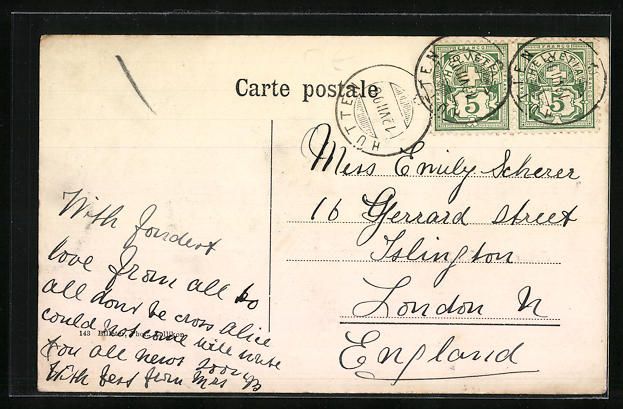 Carte postale
HÜTTEN
12.VII.06
HÜTTEN
HÜTTEN
FRANCO
FRANCO
HELVETIA
HELVETIA
5
5
Miss Emily Scherer
16 Gerrard Street
Islington
London N
England
With fondest
love from all to
all dont be cross Alice
could not come will write
you all news soon
With best from Mrs B
143